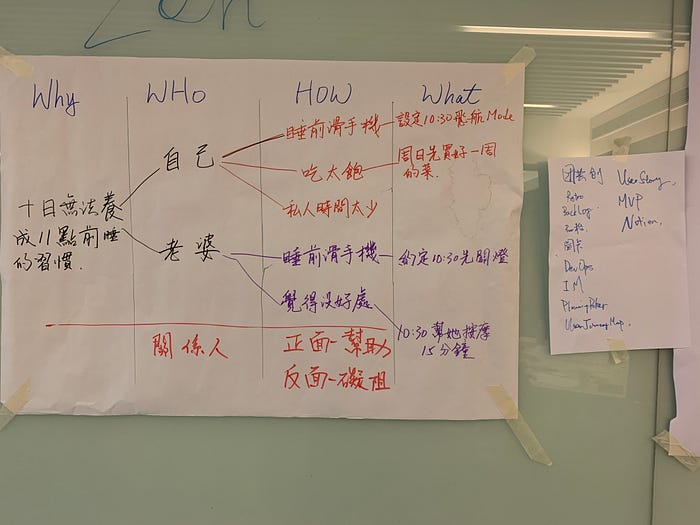 Zen
Why
WHo
HOW
What
十日無法養
成11點前睡
的習慣.
自己
老婆
睡前滑手機
吃太飽
私人時間太少
睡前滑手機
覺得沒好處
設定10:30飛航Mode
周日先買好一周
的菜.
約定10:30先關燈
10:30幫她按摩
15分鐘
關係人
正面-幫助
反面-礙阻
User Story,
Retro
MVP
Backlog.
Notion.
DevOps
IM
Planning Poker
User Journey Map.